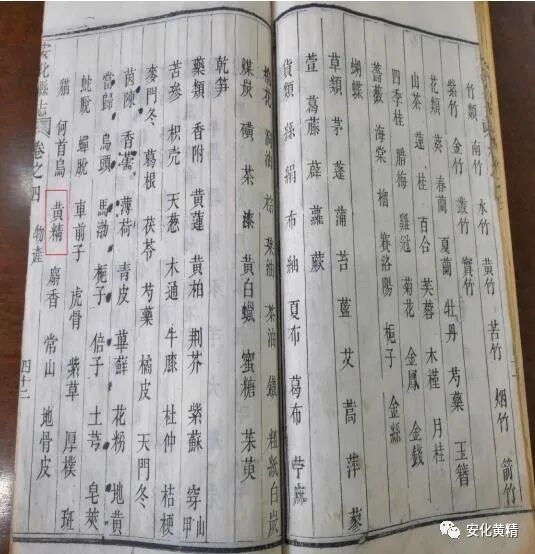 竹類 南竹 水竹 黄竹 苦竹 烟竹 箭竹
紫竹 金竹 叢竹 實竹
花類 葵 春蘭 夏蘭 牡丹 芍藥 玉簪
山茶 蓮 桂 百合 芙蓉 木槿 月桂
四季桂 臘梅 雞冠 菊花 金鳳 金錢
薔薇 海棠 榴 賽洛陽 梔子 金絲
蝴蝶
草類 茅 蓬 蒲 苫 藍 艾 蒿 萍 蓼
萱 葛藤 薜蘿 蕨
貨類 絲 絹 布 紬 夏布 葛布 苧麻
松花 桐油 茶油 鐵 粗紙 白炭
煤炭 磺 茶 漆 黄白蠟 蜜糖 茱萸
乾笋
藥類 香附 黄蓮 黄柏 荆芥 紫蘇 穿山甲
苦參 枳壳 天葱 木通 牛膝 杜仲 桔梗
麥門冬 葛根 茯苓 芍藥 橘皮 天門冬
茵陳 香薷 薄荷 青皮 萆薢 花粉 地黄
當歸 烏頭 馬渤 梔子 倍子 土芎 皂莢
蛇脫 蟬脫 車前子 虎骨 紫草 厚樸 斑
猫 何首烏 黄精 麝香 常山 地骨皮
安化縣志 卷之四 物産 四十二
安化黄精